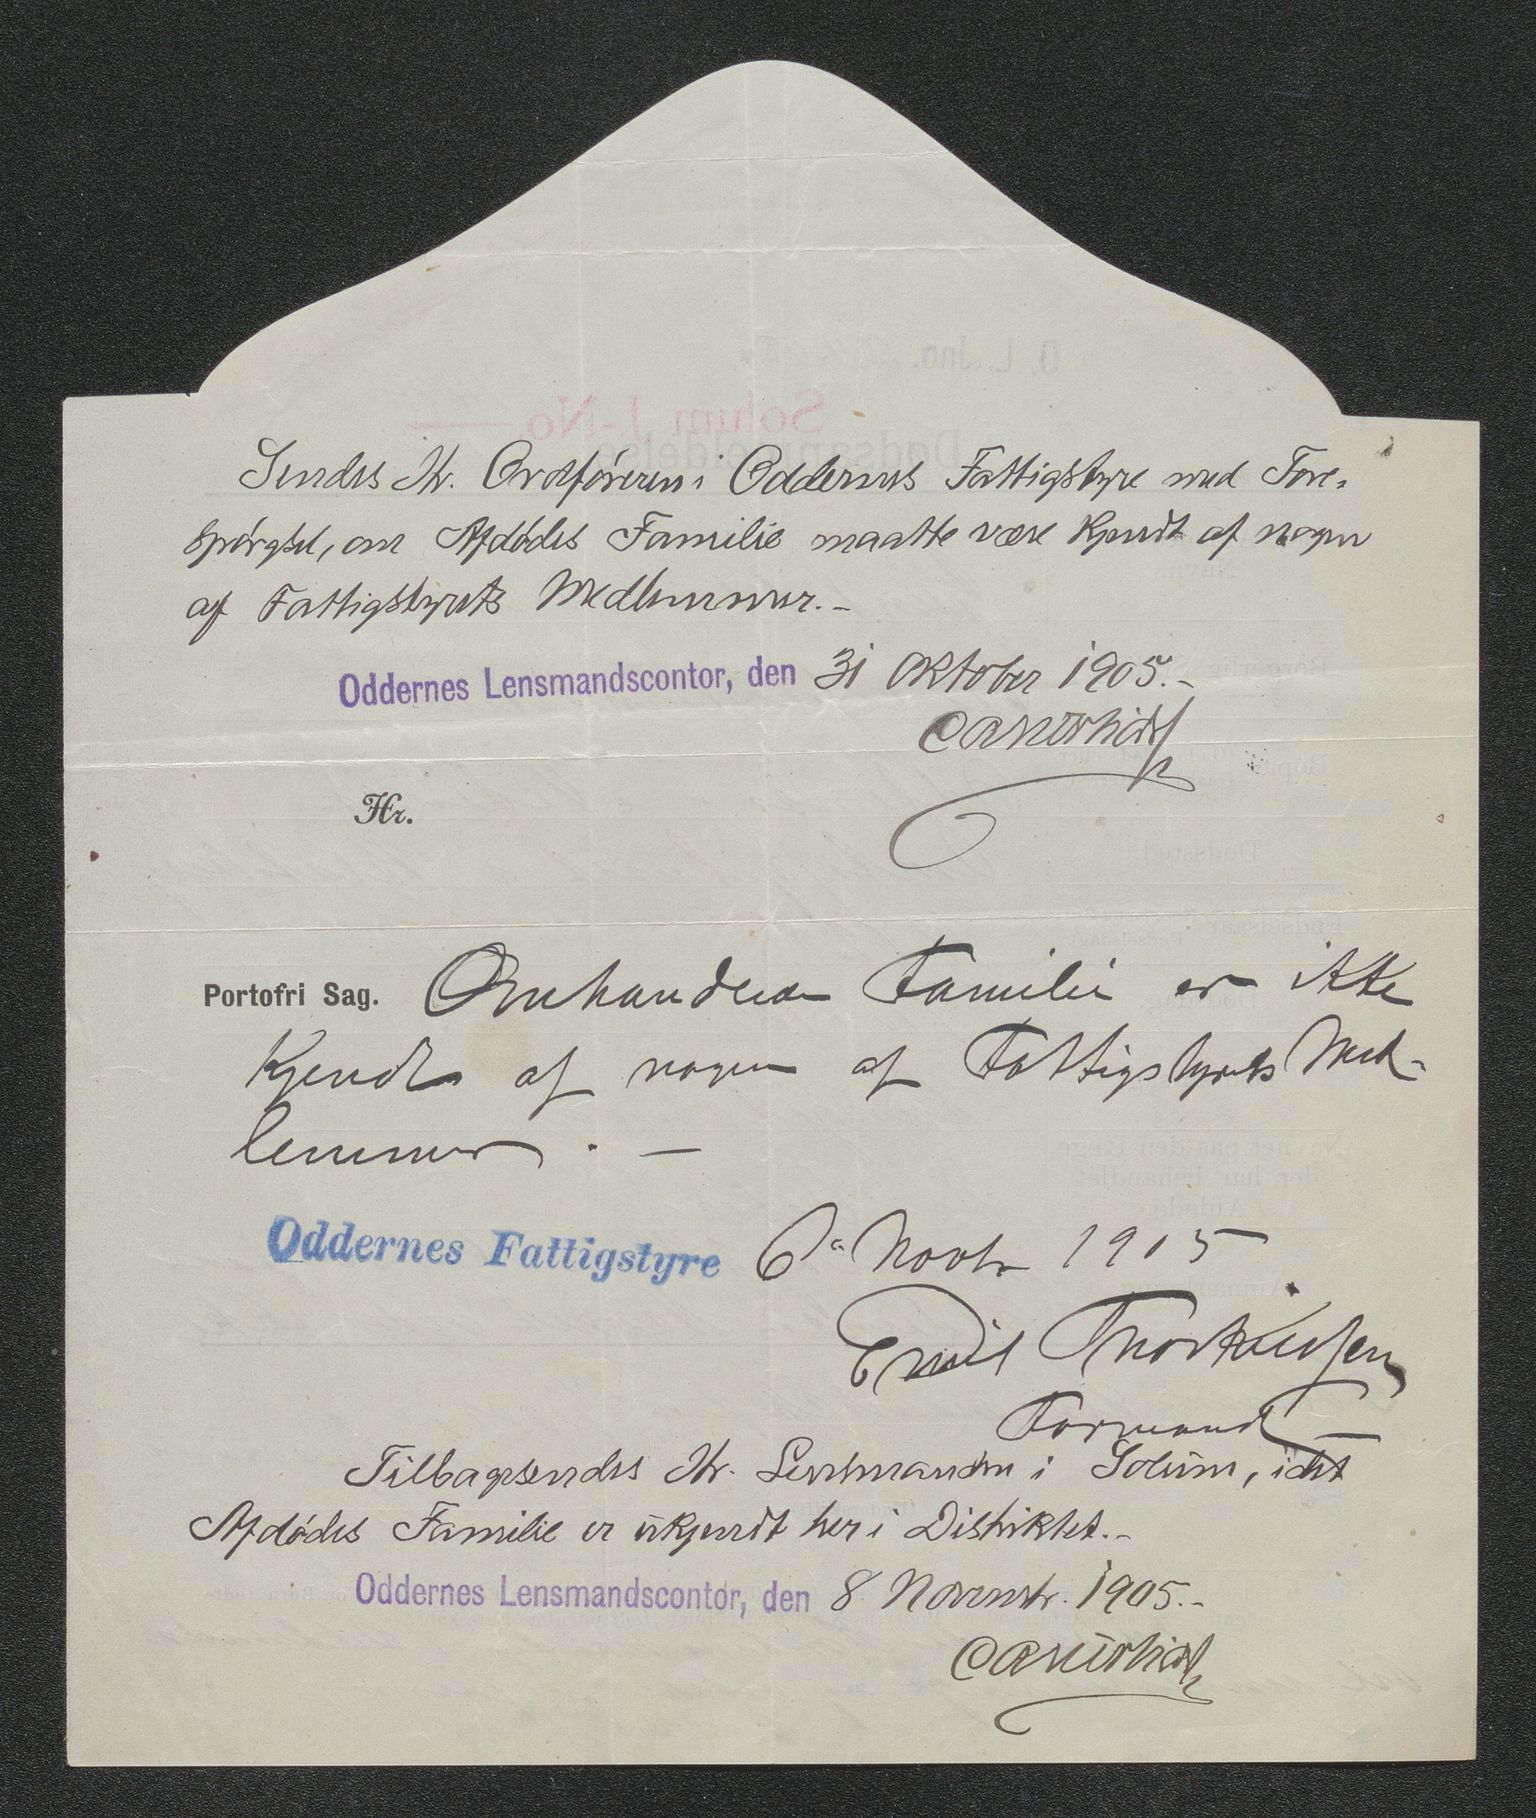 Sendes Hr. Ordføreren i Oddernes Fattigstyre med Fore-
spørgsel, om Afdødes Familie maatte være kjendt af nogen
af Fattigstyrets Medlemmer.-
Oddernes Lensmandscontor, den 31 Oktober 1905.-
Hr.
Portofri Sag. Omhandlede Familie er ikke
kjendt af nogen af Fattigstyrets Med-
lemmer. -
Oddernes Fattigstyre 6 Novbr 1905
Emil Thorkildsen
Formand
Tilbagesendes Hr. Lensmanden i Solum, idet
Afdødes Familie er ukjendt her i Distriktet.-
Oddernes Lensmandscontor, den 8 Novembr. 1905.-